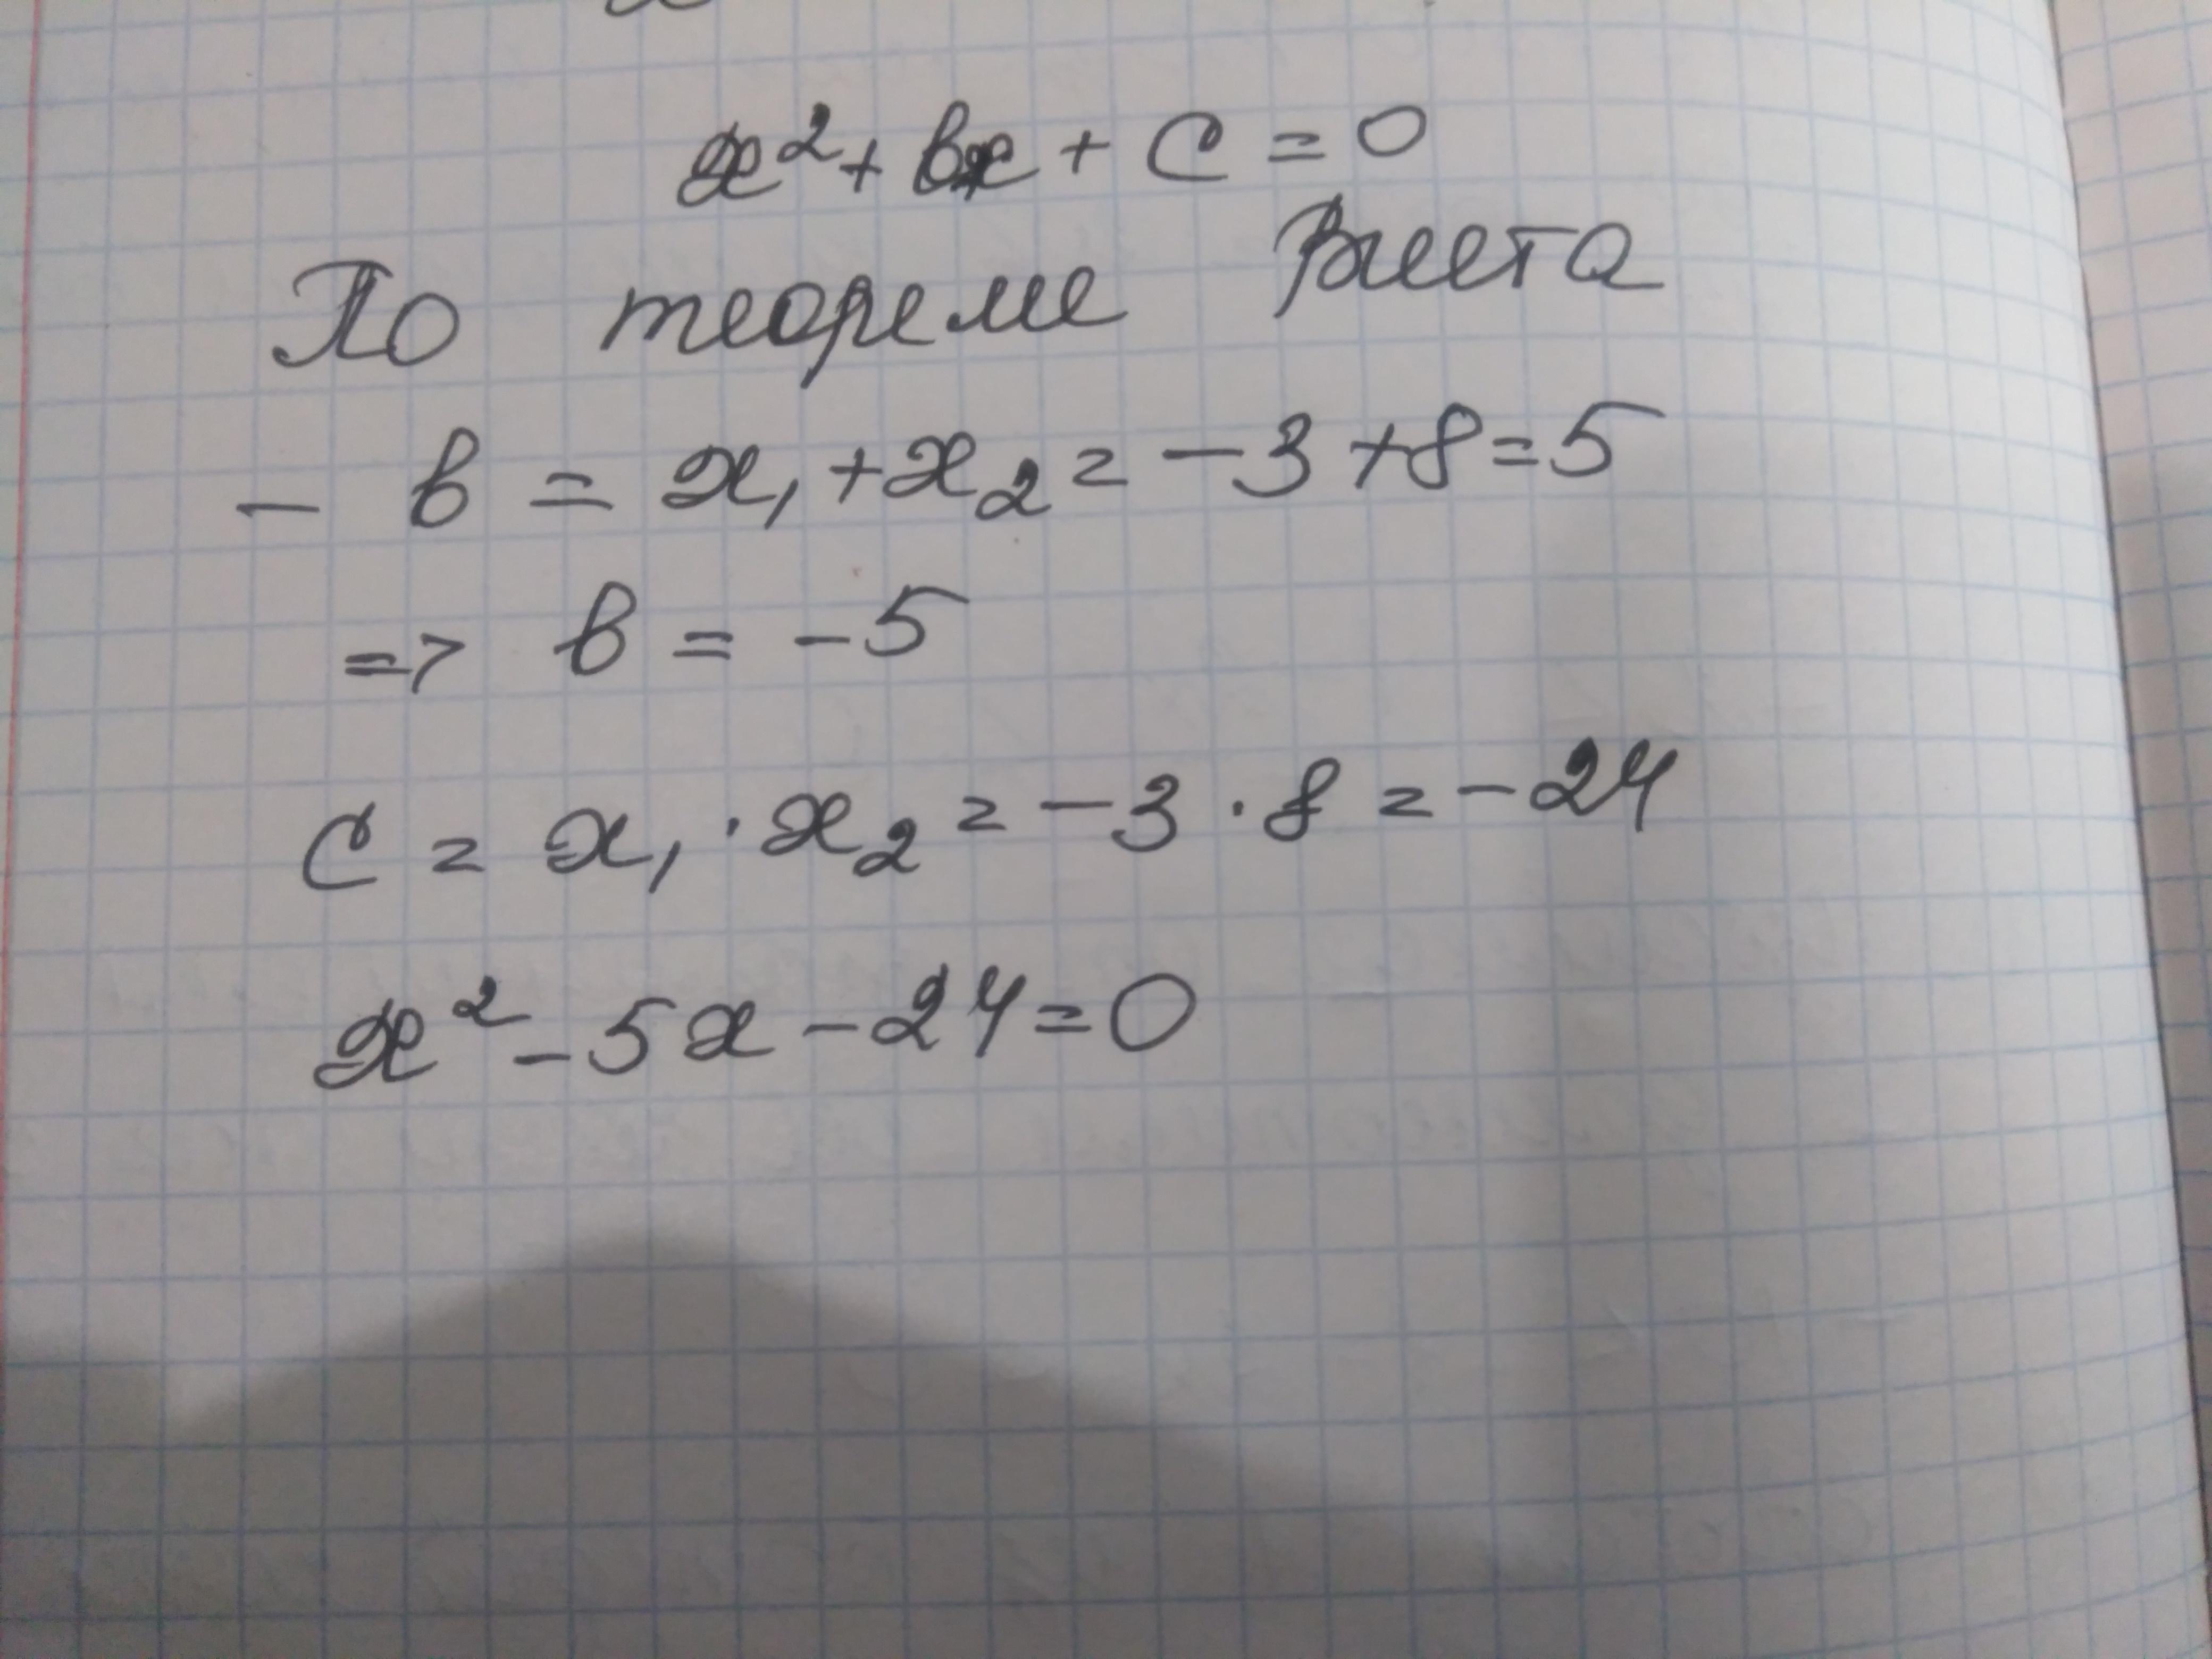 x² + bx + c = 0
По теореме Виета
- b = x₁ + x₂ = -3 + 8 = 5
=> b = -5
c = x₁ · x₂ = -3 · 8 = -24
x² - 5x - 24 = 0